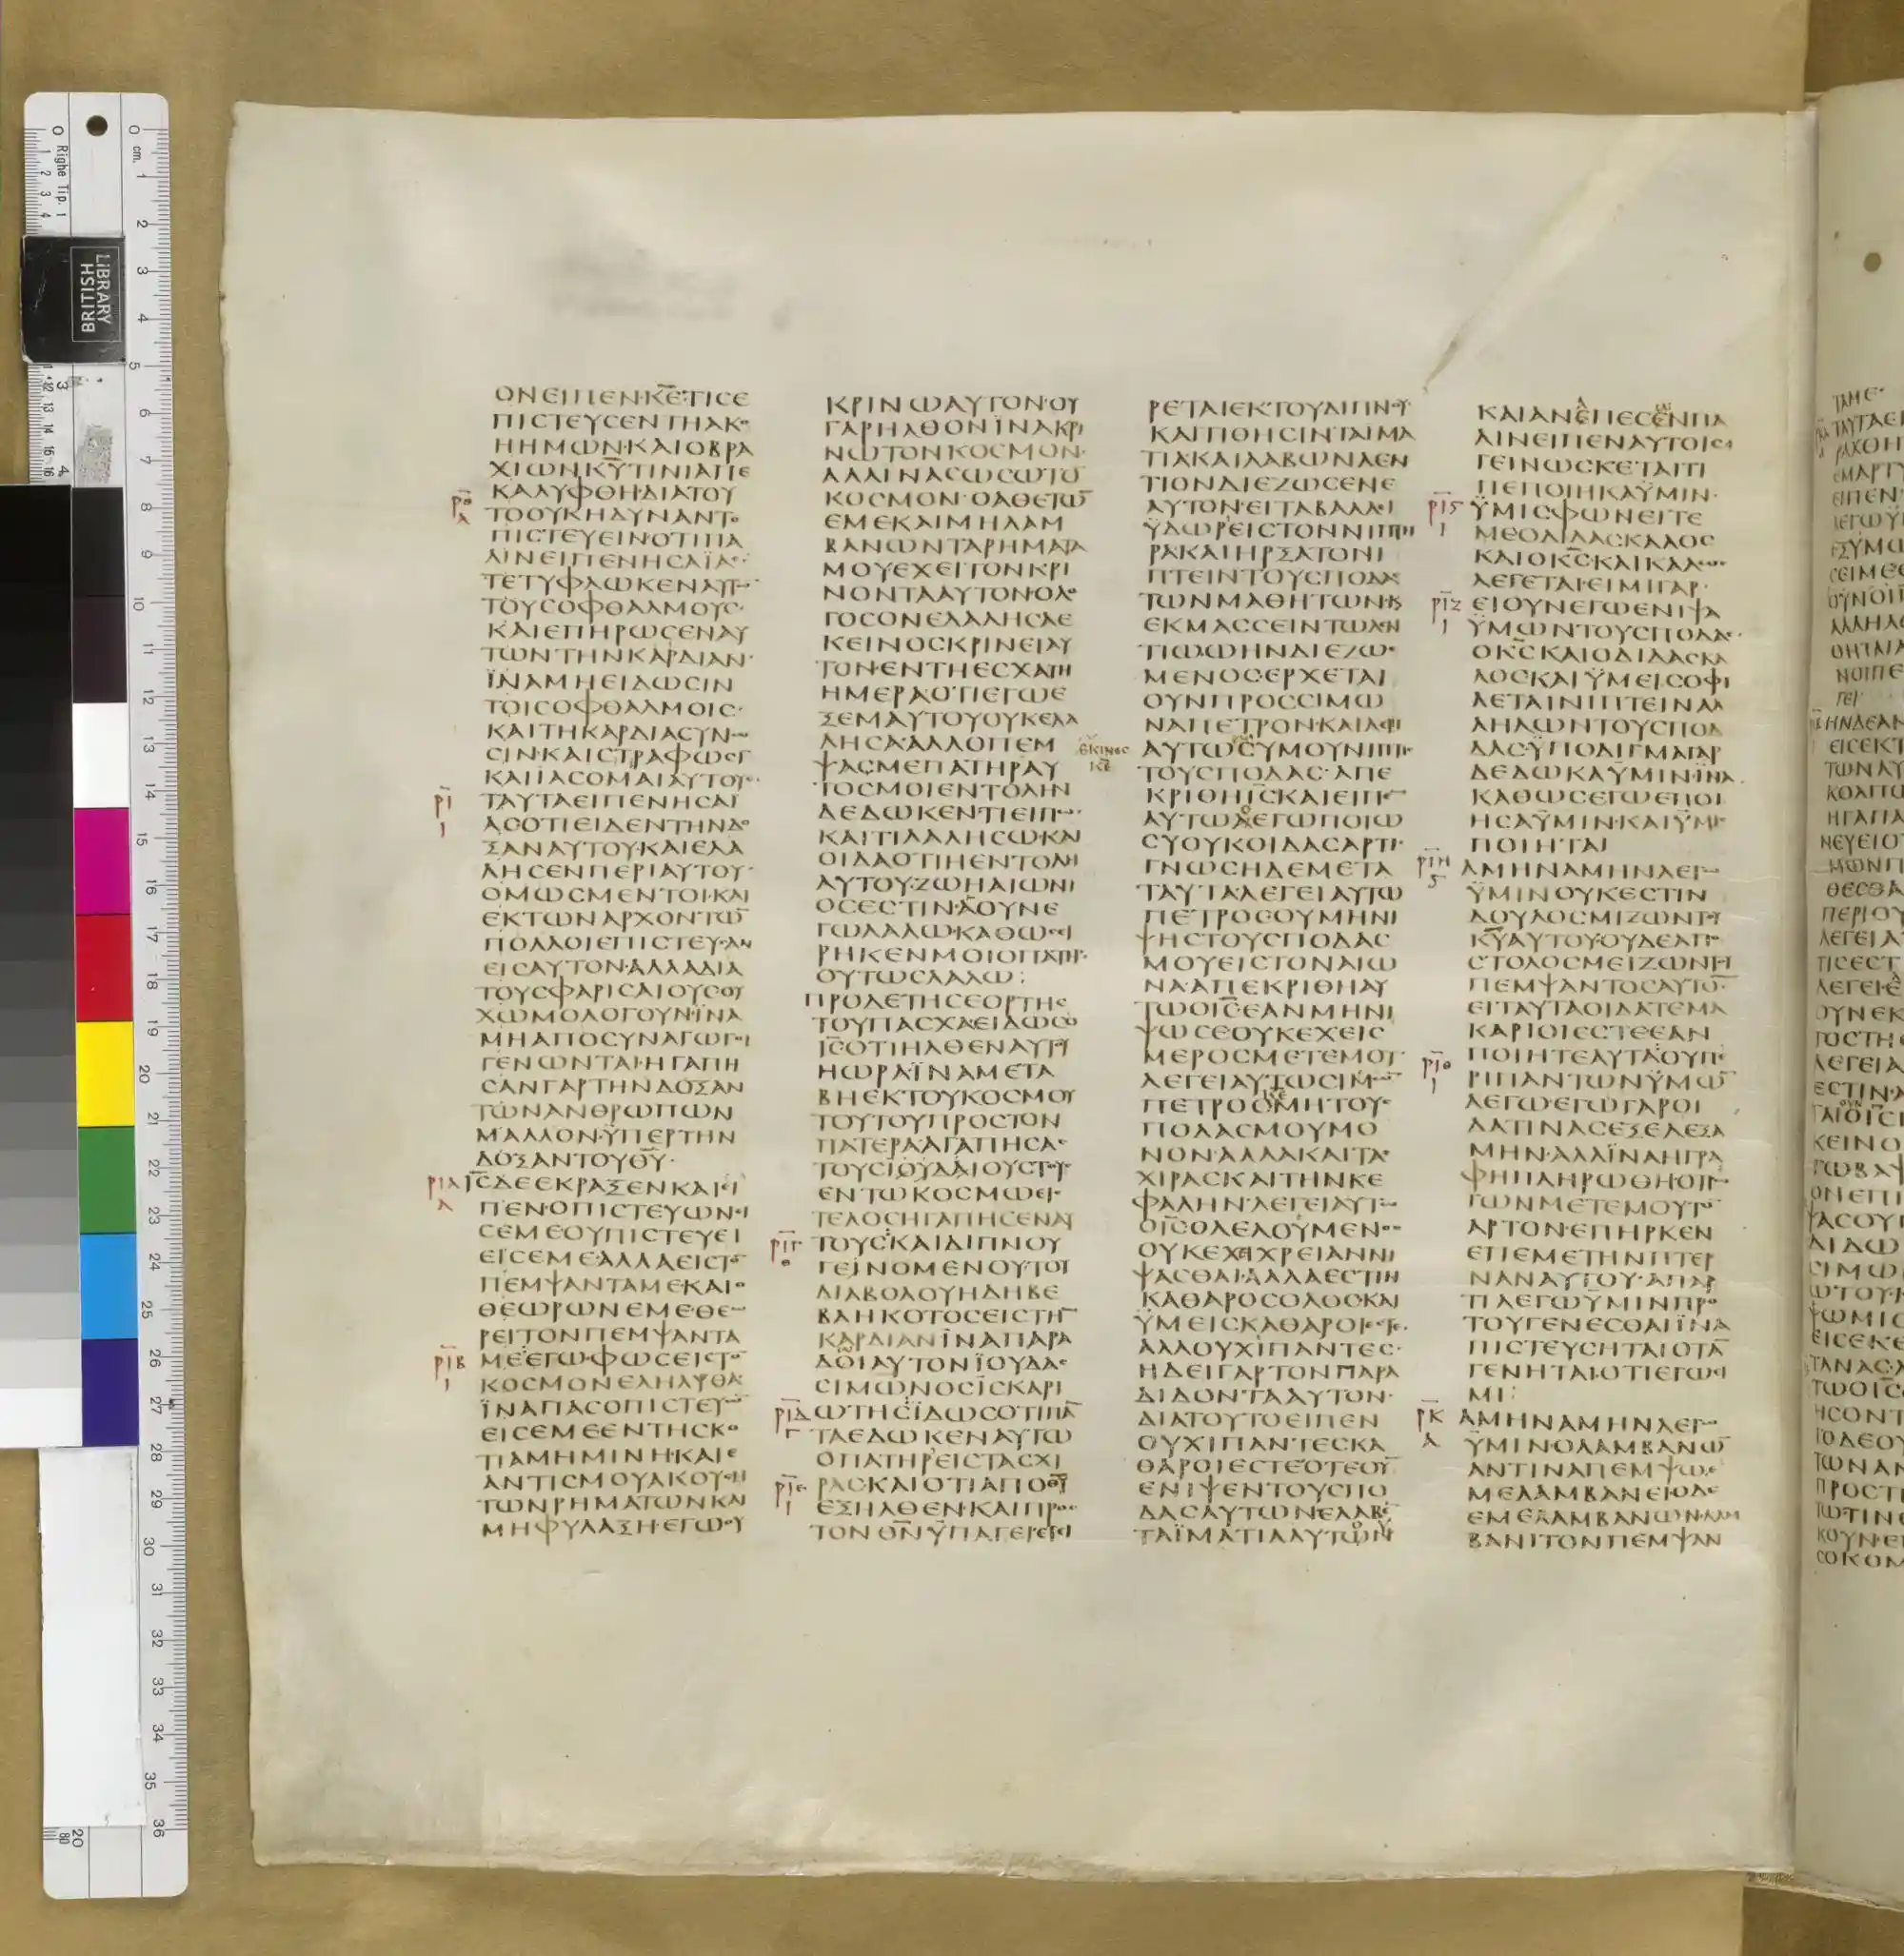 ΟΝΕΙΠΕΝ·Κ̅Ε̅·ΤΙϹΕ
ΠΙϹΤΕΥϹΕΝΤΗΑΚΟ
ΗΗΜΩΝ·ΚΑΙΟΒΡΑ
ΧΙΩΝΚ̅Υ̅ΤΙΝΙΑΠΕ
ΚΑΛΥΦΘΗ·ΔΙΑΤΟΥ
ΤΟΟΥΚΗΔΥΝΑΝΤΟ
ΠΙϹΤΕΥΕΙΝΟΤΙΠΑ
ΛΙΝΕΙΠΕΝΗϹΑΪΑϹ·
ΤΕΤΥΦΛΩΚΕΝΑΥΤΩ
ΤΟΥϹΟΦΘΑΛΜΟΥϹ·
ΚΑΙΕΠΗΡΩϹΕΝΑΥ
ΤΩΝΤΗΝΚΑΡΔΙΑΝ·
ΪΝΑΜΗΕΙΔΩϹΙΝ
ΤΟΙϹΟΦΘΑΛΜΟΙϹ·
ΚΑΙΤΗΚΑΡΔΙΑϹΥΝΩ
ϹΙΝ·ΚΑΙϹΤΡΑΦΩϹΙ
ΚΑΙΪΑϹΟΜΑΙΑΥΤΟΥϹ·
ΤΑΥΤΑΕΙΠΕΝΗϹΑΪ
ΑϹΟΤΙΕΙΔΕΝΤΗΝΔΟ
ΞΑΝΑΥΤΟΥ·ΚΑΙΕΛΑ
ΛΗϹΕΝΠΕΡΙΑΥΤΟΥ·
ΟΜΩϹΜΕΝΤΟΙ·ΚΑΙ
ΕΚΤΩΝΑΡΧΟΝΤΩ̅
ΠΟΛΛΟΙΕΠΙϹΤΕΥϹΑΝ
ΕΙϹΑΥΤΟΝ·ΑΛΛΑΔΙΑ
ΤΟΥϹΦΑΡΙϹΑΙΟΥϹΟΥ
ΧΩΜΟΛΟΓΟΥΝ·ΪΝΑ
ΜΗΑΠΟϹΥΝΑΓΩΓΟΙ
ΓΕΝΩΝΤΑΙ·ΗΓΑΠΗ
ϹΑΝΓΑΡΤΗΝΔΟΞΑΝ
ΤΩΝΑΝΘΡΩΠΩΝ
ΜΑΛΛΟΝ·ΫΠΕΡΤΗΝ
ΔΟΞΑΝΤΟΥΘ̅Υ̅·
Ι̅Ϲ̅ΔΕΕΚΡΑΞΕΝΚΑΙΕΙ
ΠΕΝ·ΟΠΙϹΤΕΥΩΝΕΙ
ϹΕΜΕΟΥΠΙϹΤΕΥΕΙ
ΕΙϹΕΜΕ·ΑΛΛΑΕΙϹΤΟ̅
ΠΕΜΨΑΝΤΑΜΕ·ΚΑΙΟ
ΘΕΩΡΩΝΕΜΕΘΕΩ
ΡΕΙΤΟΝΠΕΜΨΑΝΤΑ
ΜΕ·ΕΓΩ·ΦΩϹΕΙϹΤΟ̅
ΚΟϹΜΟΝΕΛΗΛΥΘΑ
ΪΝΑΠΑϹΟΠΙϹΤΕΥΩ̅
ΕΙϹΕΜΕΕΝΤΗϹΚΟ
ΤΙΑΜΗΜΙΝΗ·ΚΑΙΕ
ΑΝΤΙϹΜΟΥΑΚΟΥϹΗ
ΤΩΝΡΗΜΑΤΩΝΚΑΙ
ΜΗΦΥΛΑΞΗ·ΕΓΩΟΥ
ΚΡΙΝΩΑΥΤΟΝ·ΟΥ
ΓΑΡΗΛΘΟΝΪΝΑΚΡΙ
ΝΩΤΟΝΚΟϹΜΟΝ·
ΑΛΛΙΝΑϹΩϹΩΤΟ̅
ΚΟϹΜΟΝ·ΟΑΘΕΤΩ̅
ΕΜΕΚΑΙΜΗΛΑΜ
ΒΑΝΩΝΤΑΡΗΜΑΤΑ
ΜΟΥΕΧΕΙΤΟΝΚΡΙ
ΝΟΝΤΑΑΥΤΟΝ·ΟΛΟ
ΓΟϹΟΝΕΛΑΛΗϹΑΕ
ΚΕΙΝΟϹΚΡΙΝΕΙΑΥ
ΤΟΝ·ΕΝΤΗΕϹΧΑΤΗ
ΗΜΕΡΑ·ΟΤΙΕΓΩΕ
ΞΕΜΑΥΤΟΥΟΥΚΕΛΑ
ΛΗϹΑ·ΑΛΛΟΠΕΜ
ΨΑϹΜΕΠΑΤΗΡΑΥ
ΤΟϹΜΟΙΕΝΤΟΛΗΝ
ΔΕΔΩΚΕΝ·ΤΙΕΙΠΩ·
ΚΑΙΤΙΛΑΛΗϹΩ·ΚΑΙ
ΟΙΔΑΟΤΙΗΕΝΤΟΛΗ
ΑΥΤΟΥ·ΖΩΗΑΙΩΝΙ
ΟϹΕϹΤΙΝ·ΑΟΥΝΕ
ΓΩΛΑΛΩ·ΚΑΘΩϹΕΙ
ΡΗΚΕΝΜΟΙΟΠΑΤΗΡ·
ΟΥΤΩϹΛΑΛΩ:
ΠΡΟΔΕΤΗϹΕΟΡΤΗϹ
ΤΟΥΠΑϹΧΑ·ΕΙΔΩϹΟ
Ι̅Ϲ̅ΟΤΙΗΛΘΕΝΑΥΤΟΥ
ΗΩΡΑ·ΪΝΑΜΕΤΑ
ΒΗΕΚΤΟΥΚΟϹΜΟΥ
ΤΟΥΤΟΥΠΡΟϹΤΟΝ
ΠΑΤΕΡΑ·ΑΓΑΠΗϹΑϹ
ΤΟΥϹΙΟΥΔΑΙΟΥϹΤΟΥϹ
ΕΝΤΩΚΟϹΜΩΕΙϹ
ΤΕΛΟϹΗΓΑΠΗϹΕΝΑΥ
ΤΟΥϹΚΑΙΔΙΠΝΟΥ
ΓΕΙΝΟΜΕΝΟΥ·ΤΟΥ
ΔΙΑΒΟΛΟΥΗΔΗΒΕ
ΒΛΗΚΟΤΟϹΕΙϹΤΗ̅
ΚΑΡΔΙΑΝΪΝΑΠΑΡΑ
ΔΟΙΑΥΤΟΝΪΟΥΔΑϹ
ϹΙΜΩΝΟϹΙϹΚΑΡΙ
ΩΤΗϹΪΔΩϹΟΤΙΠΑ̅
ΤΑΕΔΩΚΕΝΑΥΤΩ
ΟΠΑΤΗΡΕΙϹΤΑϹΧΙ
ΡΑϹ·ΚΑΙΟΤΙΑΠΟΘ̅Υ̅
ΕΞΗΛΘΕΝ·ΚΑΙΠΡΟϹ
ΤΟΝΘ̅Ν̅ΫΠΑΓΕΙ·ΕΓΕΙ
ΕΚΙΝΟϹ
Κ̅Ε̅
ΡΕΤΑΙΕΚΤΟΥΔΙΠΝΟΥ
ΚΑΙΤΙΘΗϹΙΝΤΑΙΜΑ
ΤΙΑΚΑΙΛΑΒΩΝΛΕΝ
ΤΙΟΝΔΙΕΖΩϹΕΝΕ
ΑΥΤΟΝ·ΕΙΤΑΒΑΛΛΕΙ
ΫΔΩΡΕΙϹΤΟΝΝΙΠΤΗ
ΡΑΚΑΙΗΡΞΑΤΟΝΙ
ΠΤΕΙΝΤΟΥϹΠΟΔΑϹ
ΤΩΝΜΑΘΗΤΩΝ·ΚΑΙ
ΕΚΜΑϹϹΕΙΝΤΩΛΕΝ
ΤΙΩΩΗΝΔΙΕΖΩϹ
ΜΕΝΟϹ·ΕΡΧΕΤΑΙ
ΟΥΝΠΡΟϹϹΙΜΩ
ΝΑΠΕΤΡΟΝ·ΚΑΙΛΕΓΙ
ΑΥΤΩϹΥΜΟΥΝΙΠΤΙϹ
ΤΟΥϹΠΟΔΑϹ·ΑΠΕ
ΚΡΙΘΗΙ̅Ϲ̅ΚΑΙΕΙΠΕ̅
ΑΥΤΩΑΕΓΩΠΟΙΩ
ϹΥΟΥΚΟΙΔΑϹΑΡΤΙ·
ΓΝΩϹΗΔΕΜΕΤΑ
ΤΑΥΤΑ·ΛΕΓΕΙΑΥΤΩ
ΠΕΤΡΟϹΟΥΜΗΝΙ
ΨΗϹΤΟΥϹΠΟΔΑϹ
ΜΟΥΕΙϹΤΟΝΑΙΩ
ΝΑ·ΑΠΕΚΡΙΘΗΑΥ
ΤΩΟΙ̅Ϲ̅ΕΑΝΜΗΝΙ
ΨΩϹΕΟΥΚΕΧΕΙϹ
ΜΕΡΟϹΜΕΤΕΜΟΥ·
ΛΕΓΕΙΑΥΤΩϹΙΜΩ̅
ΠΕΤΡΟϹΜΗΤΟΥϹ
ΠΟΔΑϹΜΟΥΜΟ
ΝΟΝ·ΑΛΛΑΚΑΙΤΑϹ
ΧΙΡΑϹΚΑΙΤΗΝΚΕ
ΦΑΛΗΝ·ΛΕΓΕΙΑΥΤΩ
ΟΙ̅Ϲ̅ΟΛΕΛΟΥΜΕΝΟϹ
ΟΥΚΕΧΕΙΧΡΕΙΑΝΝΙ
ΨΑϹΘΑΙ·ΑΛΛΑΕϹΤΙΝ
ΚΑΘΑΡΟϹΟΛΟϹΚΑΙ
ΫΜΕΙϹΚΑΘΑΡΟΙΕϹΤΕ·
ΑΛΛΟΥΧΙΠΑΝΤΕϹ·
ΗΔΕΙΓΑΡΤΟΝΠΑΡΑ
ΔΙΔΟΝΤΑΑΥΤΟΝ·
ΔΙΑΤΟΥΤΟΕΙΠΕΝ
ΟΥΧΙΠΑΝΤΕϹΚΑ
ΘΑΡΟΙΕϹΤΕ·ΟΤΕΟΥ̅
ΕΝΙΨΕΝΤΟΥϹΠΟ
ΔΑϹΑΥΤΩΝΕΛΑΒΕ̅
ΤΑΪΜΑΤΙΑΑΥΤΟΥ
ΚΑΙΑΝΕΠΕϹΕΝΠΑ
ΛΙΝΕΙΠΕΝΑΥΤΟΙϹ
ΓΕΙΝΩϹΚΕΤΑΙΤΙ
ΠΕΠΟΙΗΚΑΫΜΙΝ·
ΫΜΙϹΦΩΝΕΙΤΕ
ΜΕΟΔΙΔΑϹΚΑΛΟϹ
ΚΑΙΟΚ̅Ϲ̅ΚΑΙΚΑΛΩϹ
ΛΕΓΕΤΑΙ·ΕΙΜΙΓΑΡ·
ΕΙΟΥΝΕΓΩΕΝΙΨΑ
ΫΜΩΝΤΟΥϹΠΟΔΑϹ·
ΟΚ̅Ϲ̅ΚΑΙΟΔΙΔΑϹΚΑ
ΛΟϹΚΑΙΫΜΕΙϹΟΦΙ
ΛΕΤΑΙΝΙΠΤΕΙΝΑΛ
ΛΗΛΩΝΤΟΥϹΠΟΔΑϹ
ΫΠΟΔΙΓΜΑΓΑΡ
ΔΕΔΩΚΑΫΜΙΝ·ΪΝΑ
ΚΑΘΩϹΕΓΩΕΠΟΙ
ΗϹΑΫΜΙΝ·ΚΑΙΫΜΙϹ
ΠΟΙΗΤΑΙ
ΑΜΗΝΑΜΗΝΛΕΓΩ
ΫΜΙΝΟΥΚΕϹΤΙΝ
ΔΟΥΛΟϹΜΙΖΩΝΤΟΥ
Κ̅Υ̅ΑΥΤΟΥ·ΟΥΔΕΑΠΟ
ϹΤΟΛΟϹΜΕΙΖΩΝΤΟΥ
ΠΕΜΨΑΝΤΟϹΑΥΤΟ̅·
ΕΙΤΑΥΤΑΟΙΔΑΤΕΜΑ
ΚΑΡΙΟΙΕϹΤΕΕΑΝ
ΠΟΙΗΤΕΑΥΤΑ·ΟΥΠΕ
ΡΙΠΑΝΤΩΝΫΜΩ̅
ΛΕΓΩ·ΕΓΩΓΑΡΟΙ
ΔΑΤΙΝΑϹΕΞΕΛΕΞΑ
ΜΗΝ·ΑΛΛΪΝΑΗΓΡΑ
ΦΗΠΛΗΡΩΘΗ·ΟΤΡΩ
ΓΩΝΜΕΤΕΜΟΥΤΟ̅
ΑΡΤΟΝ·ΕΠΗΡΚΕΝ
ΕΠΕΜΕΤΗΝΠΤΕΡ
ΝΑΝΑΥΤΟΥ·ΑΠΑΡ
ΤΙΛΕΓΩΫΜΙΝΠΡΟ
ΤΟΥΓΕΝΕϹΘΑΙΪΝΑ
ΠΙϹΤΕΥϹΗΤΑΙΟΤΑ̅
ΓΕΝΗΤΑΙ·ΟΤΙΕΓΩΕΙ
ΜΙ:
ΑΜΗΝΑΜΗΝΛΕΓΩ
ΫΜΙΝ·ΟΛΑΜΒΑΝΩ̅
ΑΝΤΙΝΑΠΕΜΨΩ·Ε
ΜΕΛΑΜΒΑΝΕΙ·ΟΔΕ
ΕΜΕΛΑΜΒΑΝΩΝ·ΛΑΜ
ΒΑΝΙΤΟΝΠΕΜΨΑΝ
BRITISH
LIBRARY